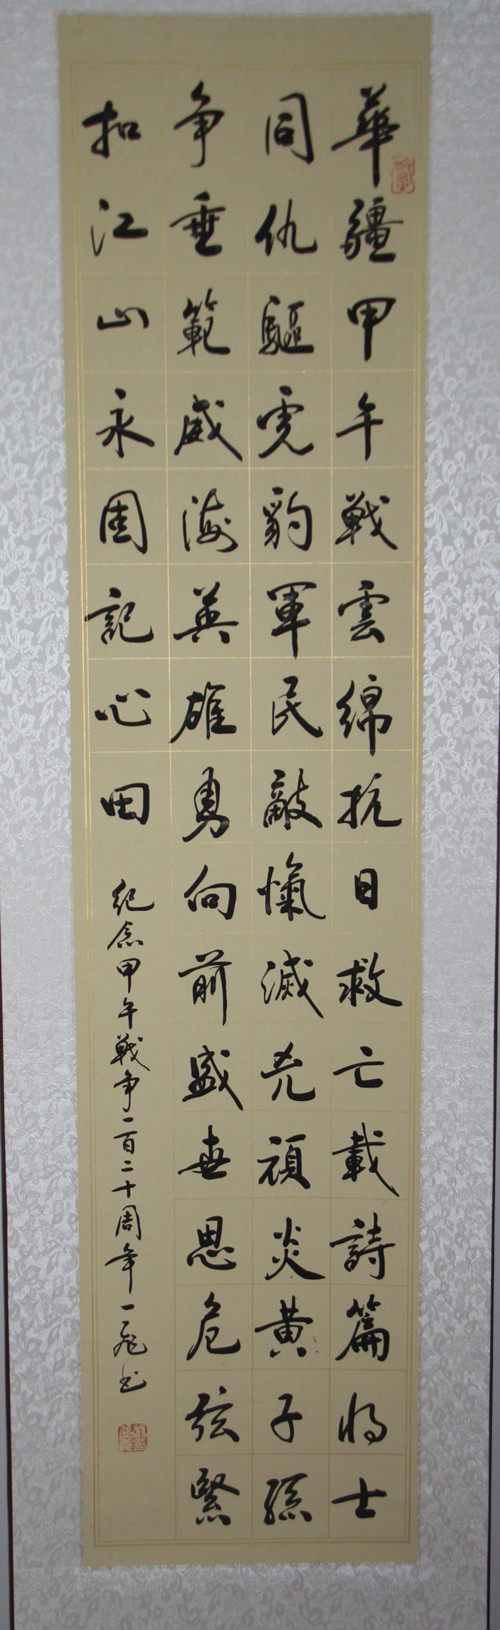 華疆甲午戰雲綿抗日救亡載詩篇將士
同仇驅虎豹軍民敵愾滅兇頑炎黃子孫
爭垂範威海英雄勇向前盛世思危弦緊
扣江山永固記心田
紀念甲午戰爭一百二十周年一飛书